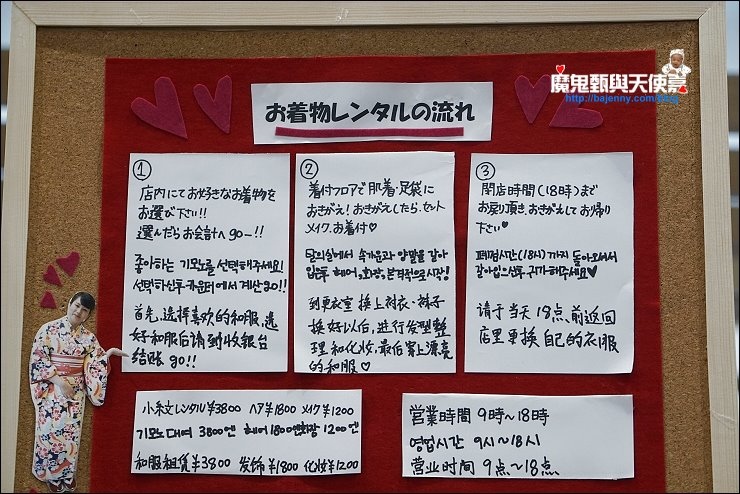 魔鬼甄與天使嘉
http://bajenny.com/blog
お着物レンタルの流れ
①
店内にてお好きなお着物を
お選び下さい!!
選んだらお会計へ go ー!!
좋아하는 기모노를 선택해주세요!
선택하신후 카운터에서 계산 go!!
首先,选择喜欢的和服,选
好和服后请到收银台
结账 go!!
②
着付フロアで肌着・足袋に
おきがえ!おきがえしたら、セット
メイク、お着付♡
탈의실에서 속가운과 양말을 갈아
입은후 헤어,화장,본격적으로시작!
到更衣室 换上衬衣・袜子
换好以后,进行发型整
理和化妆,最后穿上漂亮
的和服♡
③
閉店時間(18時)まで
お戻り頂き、おきがえしてお帰り
下さい♡
폐점시간(18시)까지 돌아오셔서
갈아입으신후 귀가해주세요♥
请于当天18点前返回
店里更换自己的衣服
小紋レンタル¥3800 ヘア¥1800 メイク¥1200
기모노대여 3800엔 헤어1800엔 화장 1200엔
和服租赁¥3800 发饰¥1800 化妆¥1200
営業時間 9時〜18時
영업시간 9시~18시
营业时间 9点~18点